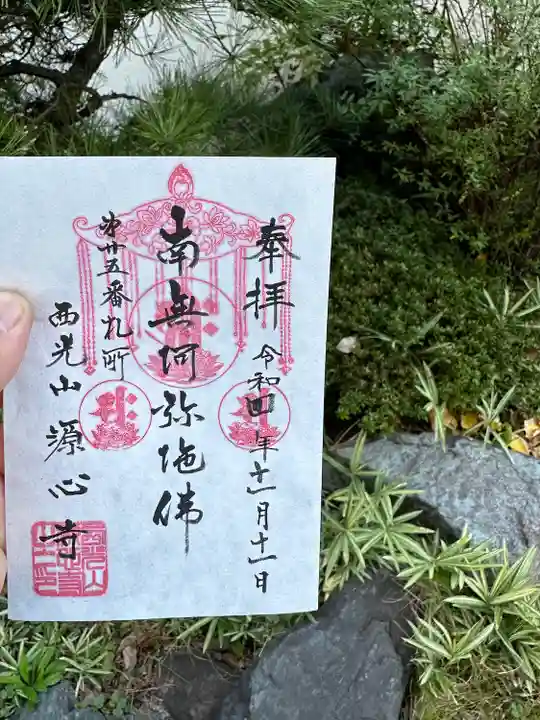 奉拝
令和四年十一月十一日
南無阿弥陀佛
第廿五番札所
西光山源心寺